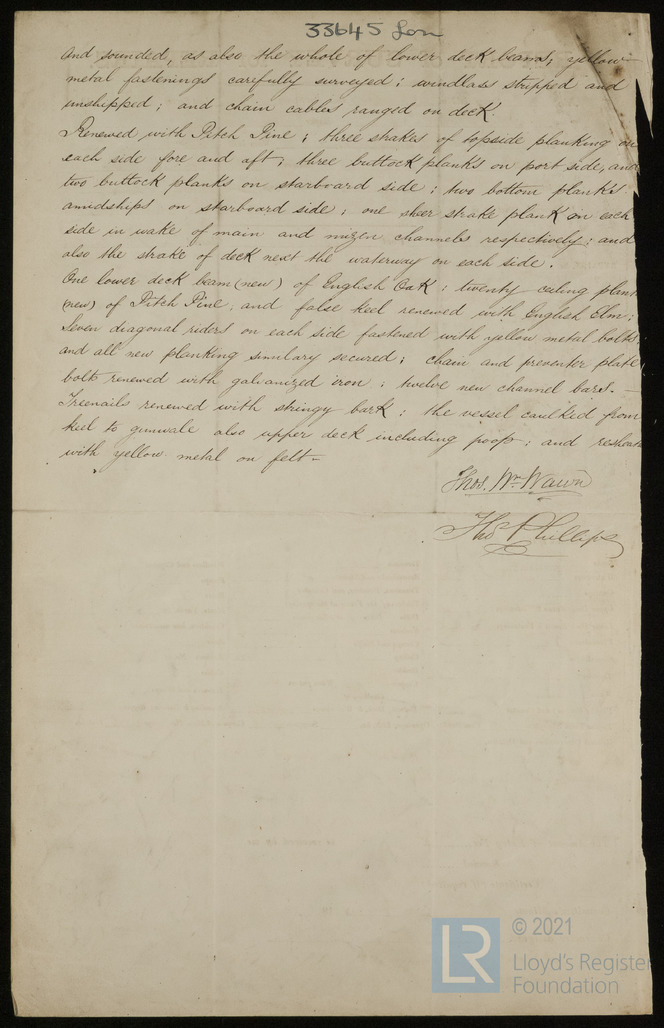 33645 Lon
and sounded, as also the whole of lower deck beams, yellow
metal fastenings carefully surveyed; windlass stripped and
unshipped; and chain cables ranged on deck.
Renewed with Pitch Pine; three strakes of topside planking on
each side fore and aft; three buttock planks on port side, and
two buttock planks on starboard side; two bottom planks
amidships on starboard side; one sheer strake plank on each
side in wake of main and mizen channels respectively; and
also the strake of deck next the waterway on each side.
One lower deck beam (new) of English Oak: twenty ceiling plank
(new) of Pitch Pine, and false keel renewed with English Elm;
Seven diagonal riders on each side fastened with yellow metal bolts,
and all new planking similary secured; chain and preventer plate
bolts renewed with galvanized iron; twelve new channel bars. —
Treenails renewed with stringy bark: the vessel caulked from
keel to gunwale also upper deck including poop; and resheat
with yellow metal on felt —
Thos. Wm. Wawn
Thos Phillips
LR
© 2021
Lloyd's Register
Foundation